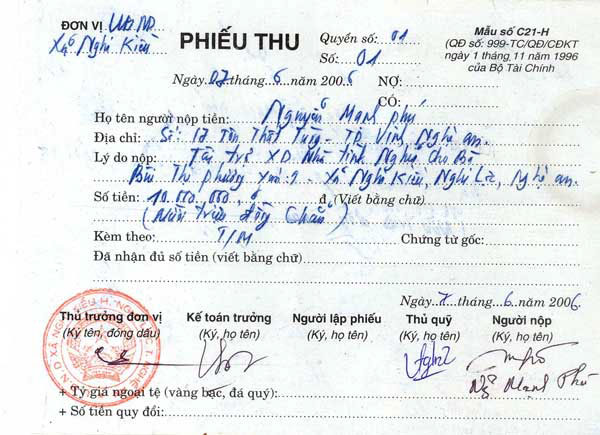 ĐƠN VỊ UBND
Xã Nghi Kiều
PHIẾU THU
Quyển số: 01
Số: 01
Mẫu số C21-H
(QĐ số: 999-TC/QĐ/CĐKT
ngày 1 tháng 11 năm 1996
của Bộ Tài Chính)
Ngày 07 tháng 6 năm 2006
NỢ:
CÓ:
Họ tên người nộp tiền: Nguyễn Mạnh Phú
Địa chỉ: Số: 17 Tôn Thất Tùng - TP Vinh, Nghệ an.
Lý do nộp: Tài trợ XD Nhà tình Nghĩa Cho Bà
Bùi Thị Phương Xóm 2 Xã Nghi Kiều, Nghi Lộc, Nghệ an.
Số tiền: 10.000.000, đ đ (Viết bằng chữ)
(Mười triệu đồng Chẵn)
Kèm theo: T/M Chứng từ gốc:
Đã nhận đủ số tiền (viết bằng chữ)
Ngày 7 tháng 6 năm 2006
Thủ trưởng đơn vị Kế toán trưởng Người lập phiếu Thủ quỹ Người nộp
(Ký tên, đóng dấu) (Ký, họ tên) (Ký, họ tên) (Ký, họ tên) (Ký, họ tên)
Ng Mạnh Phú
+ Tỷ giá ngoại tệ (vàng bạc, đá quý):
+ Số tiền quy đổi: